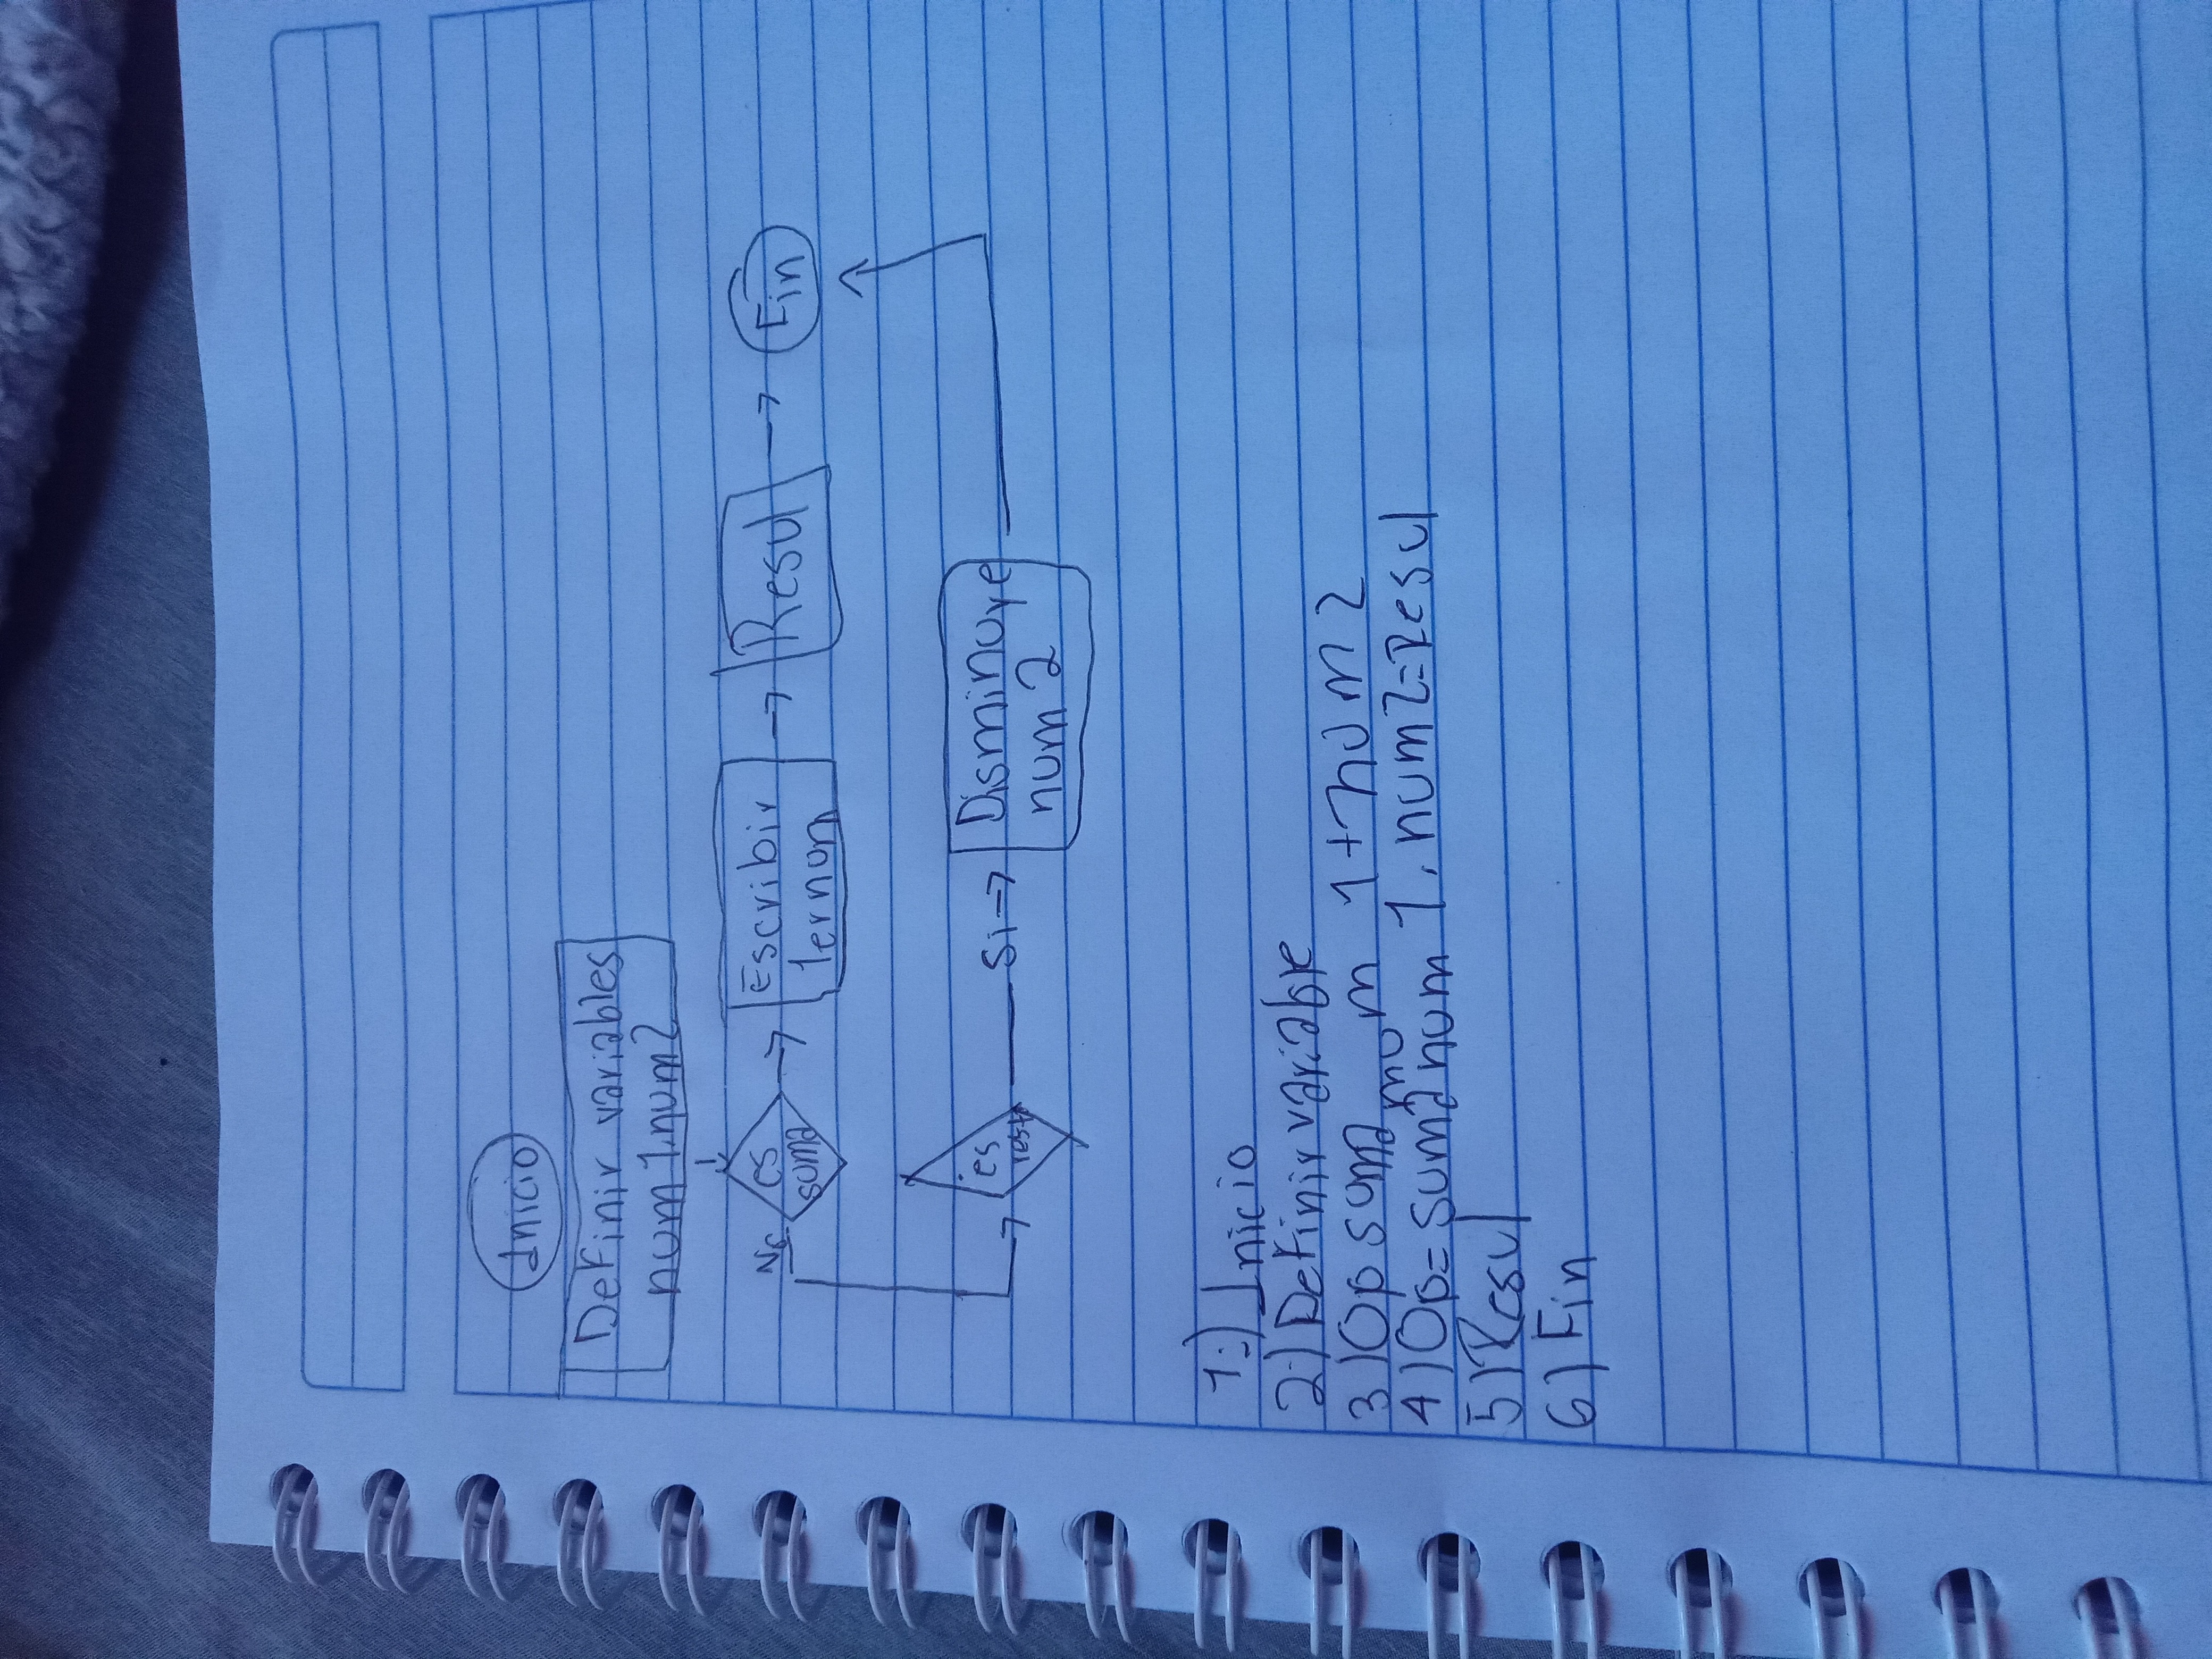 Inicio
Definir variables
num1,num2
es
suma
Escribir
1ernum
Resul
Fin
No
¿es
Si
Disminuye
num 2
1.) Inicio
2.) Definir variable
3) Op suma num 1+num 2
4) Op=suma num 1, num2=Resul
5) Resul
6) Fin